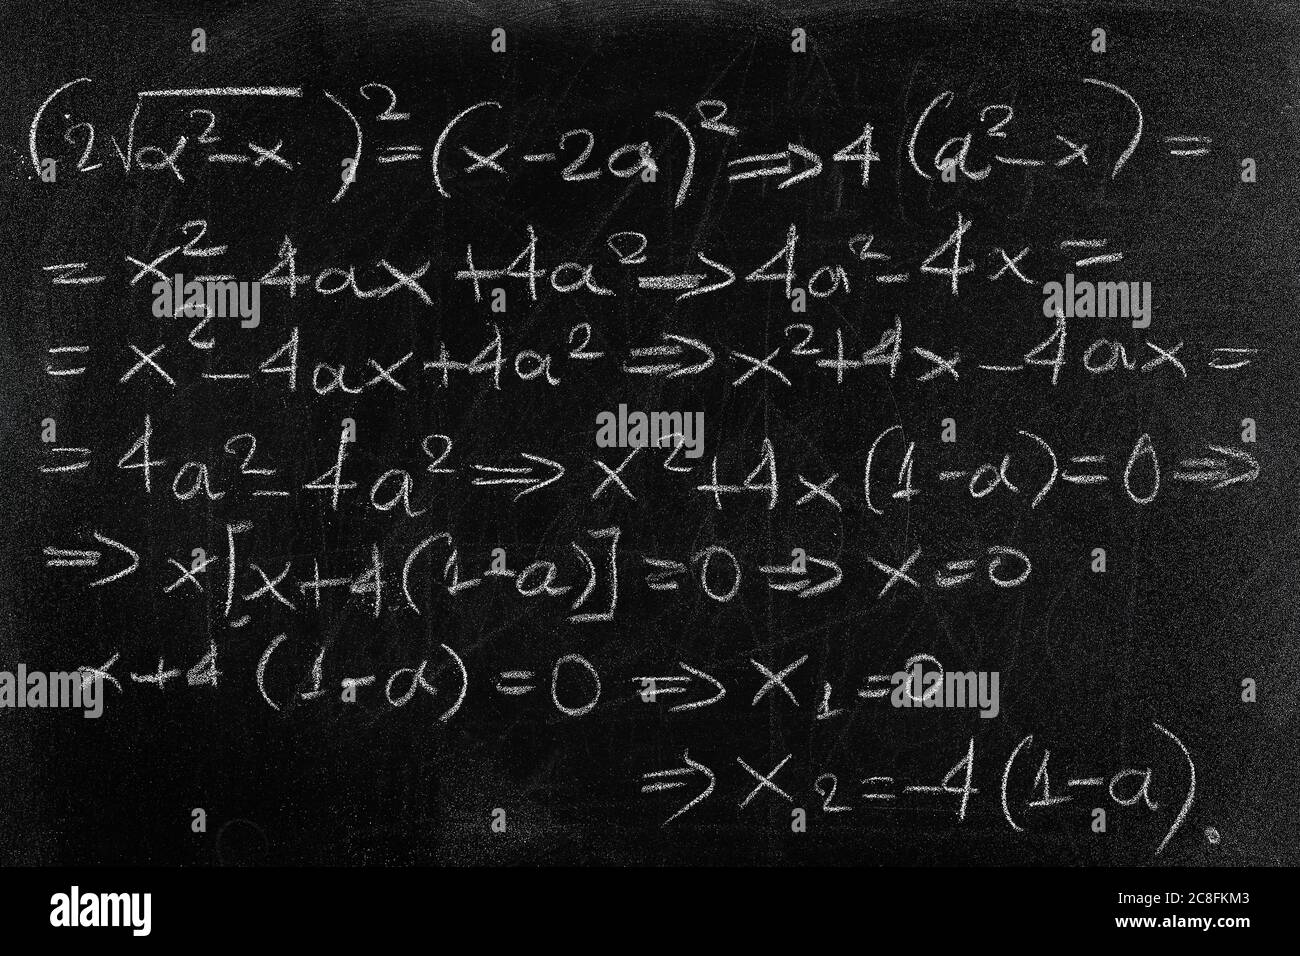 (2√a²-x)² = (x-2a)² ⇒ 4(a²-x) =
= x²-4ax+4a² → 4a²-4x =
= x²-4ax+4a² ⇒ x²+4x-4ax =
= 4a²-4a² ⇒ x²+4x(1-a)=0 ⇒
⇒ x[x+4(1-a)]=0 ⇒ x=0
x+4(1-a)=0 ⇒ x₁=0
⇒ x₂=-4(1-a).
alamy
Image ID: 2C8FKM3
www.alamy.com